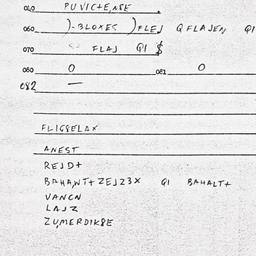 040 PUVICTENSE
060 )-BLOXES )FLEJ QFLAJEN QI
070 <> FLAJ QI $
080 0 081 0
082 —
FLIGSELAX
ANEST
REJD+
BAHAWT+ZEJZ3X QI BAHALT+
VANCN
LAJZ
ZUMERDIK8E